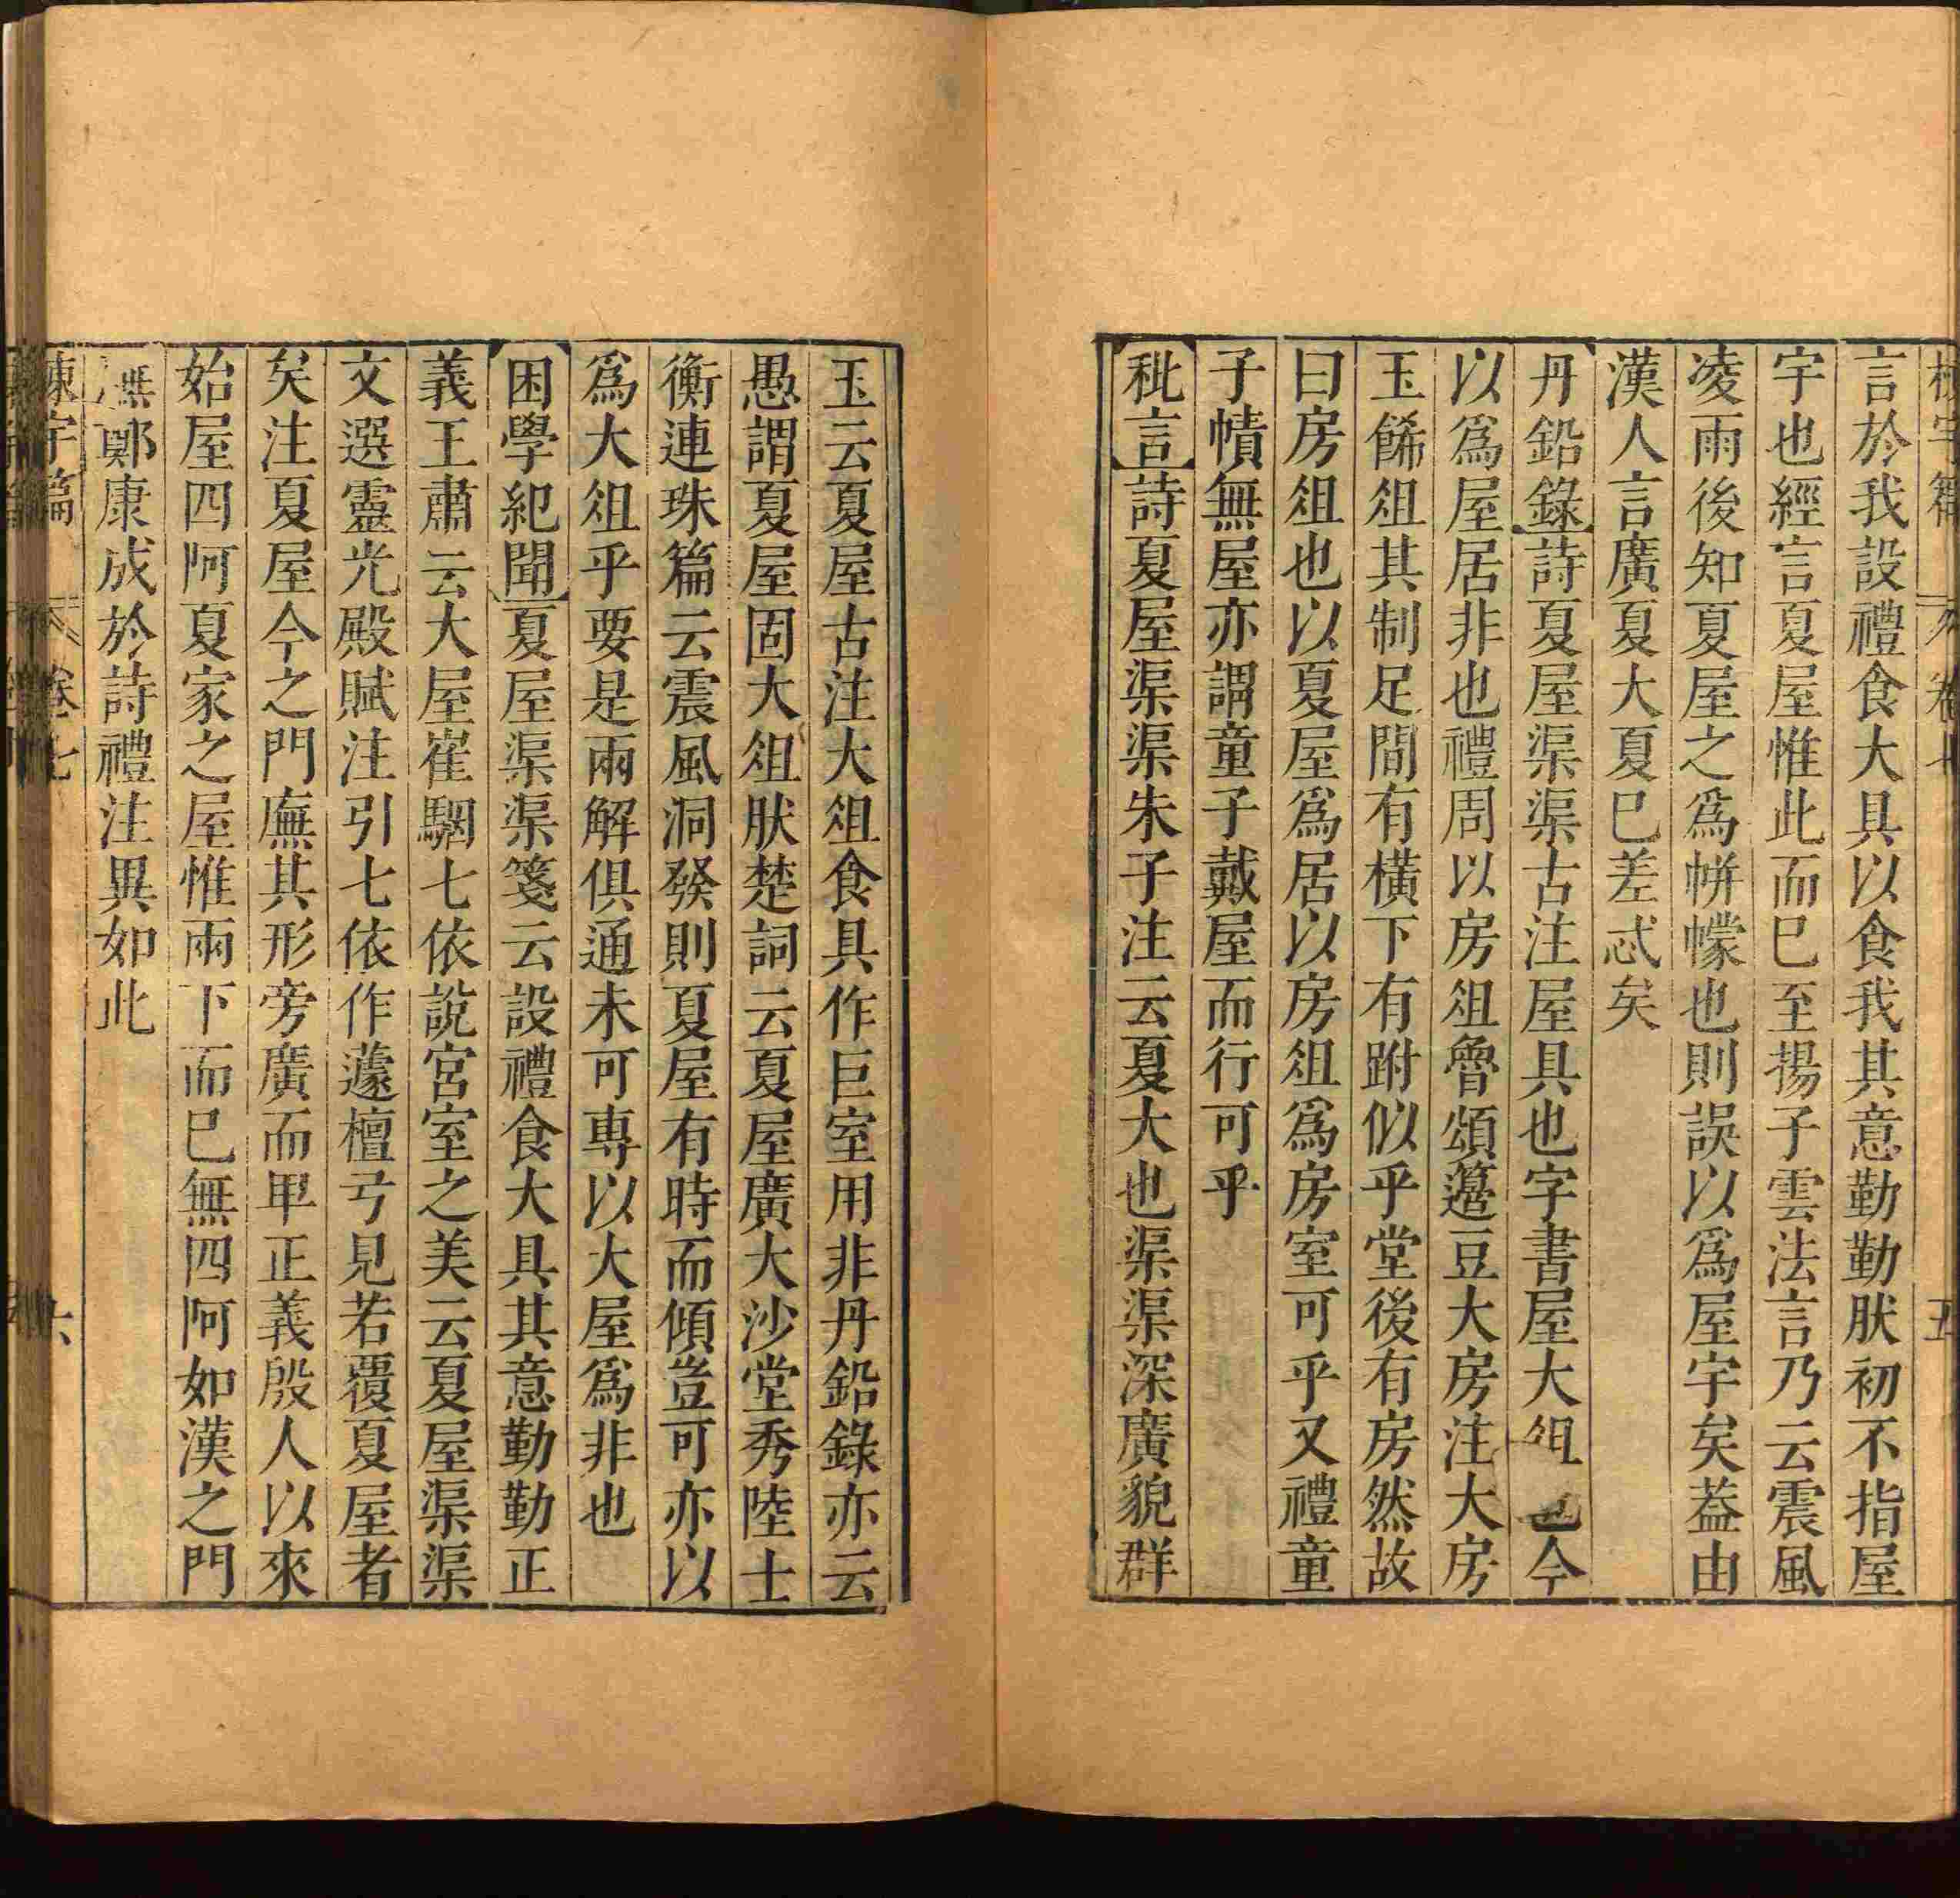 言於我設禮食大具以食我其意勤勤肰初不指屋
宇也經言夏屋惟此而巳至揚子雲法言乃云震風
凌雨後知夏屋之爲帡幪也則誤以爲屋宇矣葢由
漢人言廣夏大夏巳差忒矣
丹鉛錄詩夏屋渠渠古注屋具也字書屋大俎也今
以爲屋居非也禮周以房俎魯頌籩豆大房注大房
玉餙俎其制足間有橫下有跗似乎堂後有房然故
曰房俎也以夏屋爲居以房俎爲房室可乎又禮童
子幘無屋亦謂童子戴屋而行可乎
秕言詩夏屋渠渠朱子注云夏大也渠渠深廣貌群
玉云夏屋古注大俎食具作巨室用非丹鉛錄亦云
愚謂夏屋固大俎肰楚詞云夏屋廣大沙堂秀陸士
衡連珠篇云震風洞發則夏屋有時而傾豈可亦以
爲大俎乎要是兩解俱通未可專以大屋爲非也
困學紀聞夏屋渠渠箋云設禮食大具其意勤勤正
義王肅云大屋崔駰七依說宮室之美云夏屋渠渠
文選靈光殿賦注引七依作蘧檀弓見若覆夏屋者
矣注夏屋今之門廡其形旁廣而卑正義殷人以來
始屋四阿夏家之屋惟兩下而巳無四阿如漢之門
廡鄭康成於詩禮注異如此
卷七
六